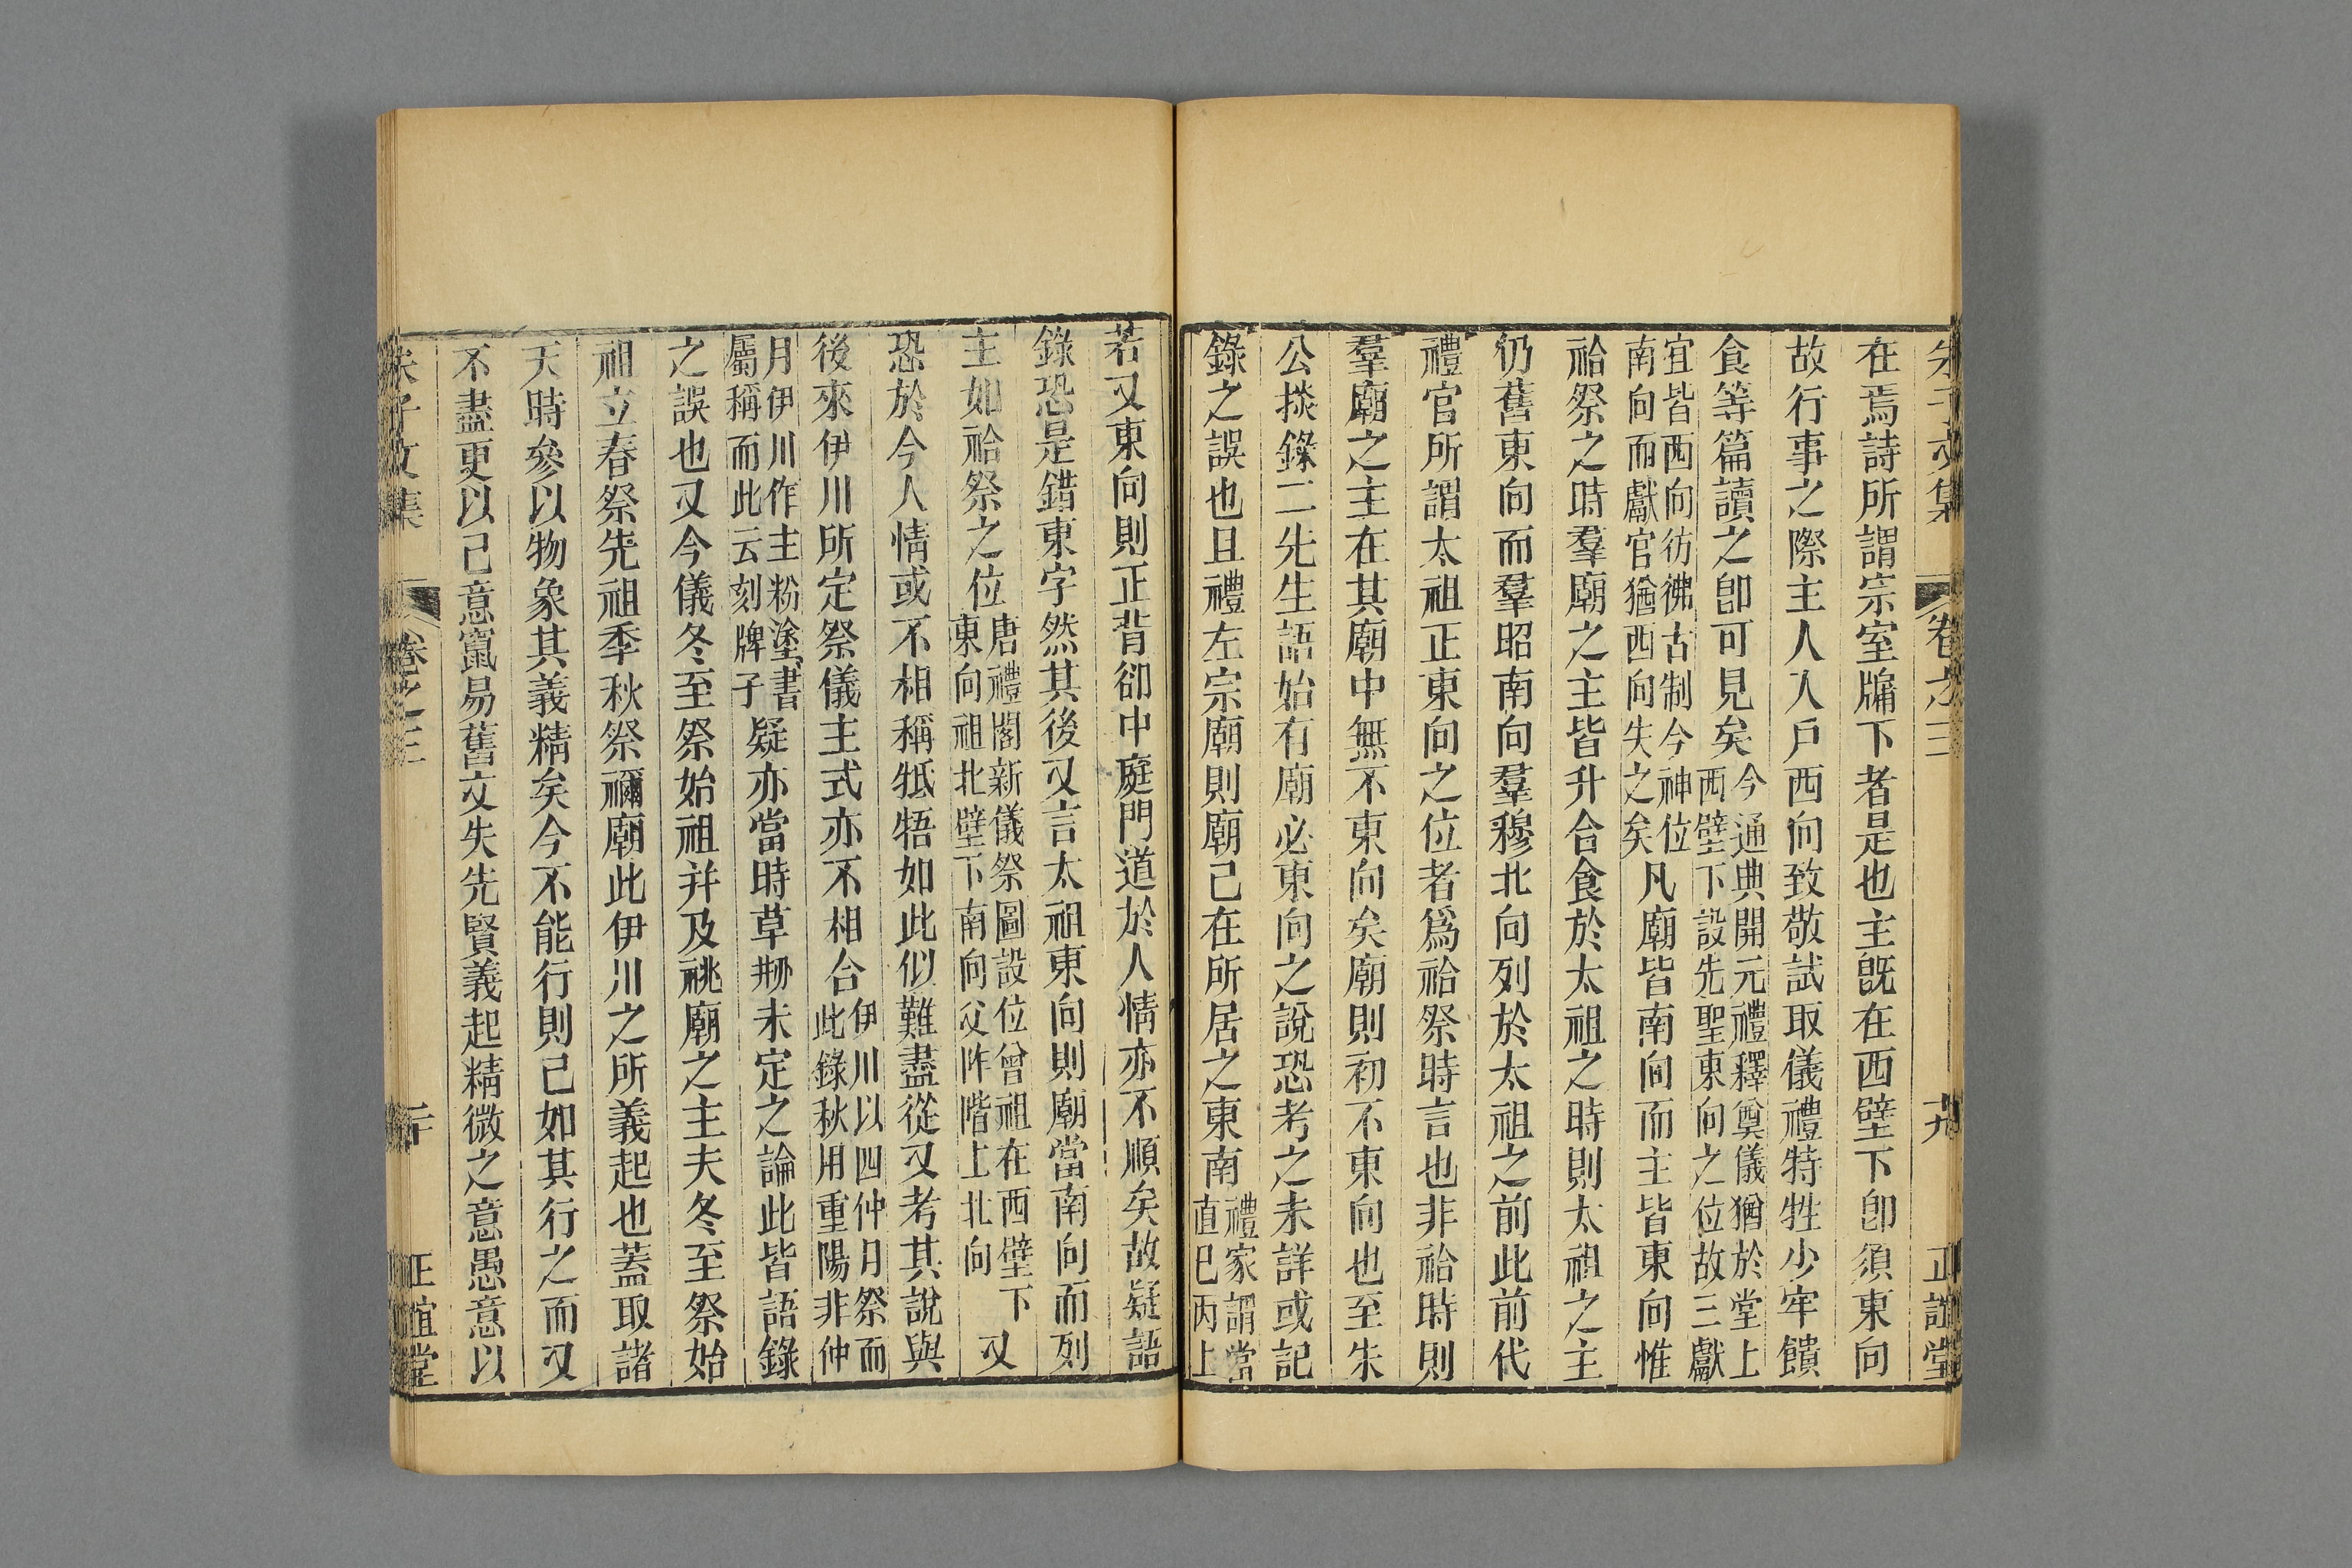 朱子文集 卷之三 十九 正誼堂
在焉詩所謂宗室牖下者是也主既在西壁下卽須東向
故行事之際主人入戶西向致敬試取儀禮特牲少牢饋
食等篇讀之卽可見矣今通典開元禮釋奠儀猶於堂上西壁下設先聖東向之位故三獻
宜皆西向彷彿古制今神位南向而獻官猶西向失之矣凡廟皆南向而主皆東向惟
祫祭之時羣廟之主皆升合食於太祖之時則太祖之主
仍舊東向而羣昭南向羣穆北向列於太祖之前此前代
禮官所謂太祖正東向之位者爲祫祭時言也非祫時則
羣廟之主在其廟中無不東向矣廟則初不東向也至朱
公掞錄二先生語始有廟必東向之說恐考之未詳或記
錄之誤也且禮左宗廟則廟已在所居之東南禮家謂當直巳丙上
若又東向則正背卻中庭門道於人情亦不順矣故疑語
錄恐是錯東字然其後又言太祖東向則廟當南向而列
主如祫祭之位唐禮閣新儀祭圖設位曾祖在西壁下東向祖北壁下南向父阼階上北向又
恐於今人情或不相稱牴牾如此似難盡從又考其說與
後來伊川所定祭儀主式亦不相合伊川以四仲月祭而此錄秋用重陽非仲
月伊川作主粉塗書屬稱而此云刻牌子疑亦當時草刱未定之論此皆語錄
之誤也又今儀冬至祭始祖并及祧廟之主夫冬至祭始
祖立春祭先祖季秋祭禰廟此伊川之所義起也蓋取諸
天時參以物象其義精矣今不能行則已如其行之而又
不盡更以己意竄易舊文失先賢義起精微之意愚意以
朱子文集 卷之三 二十 正誼堂